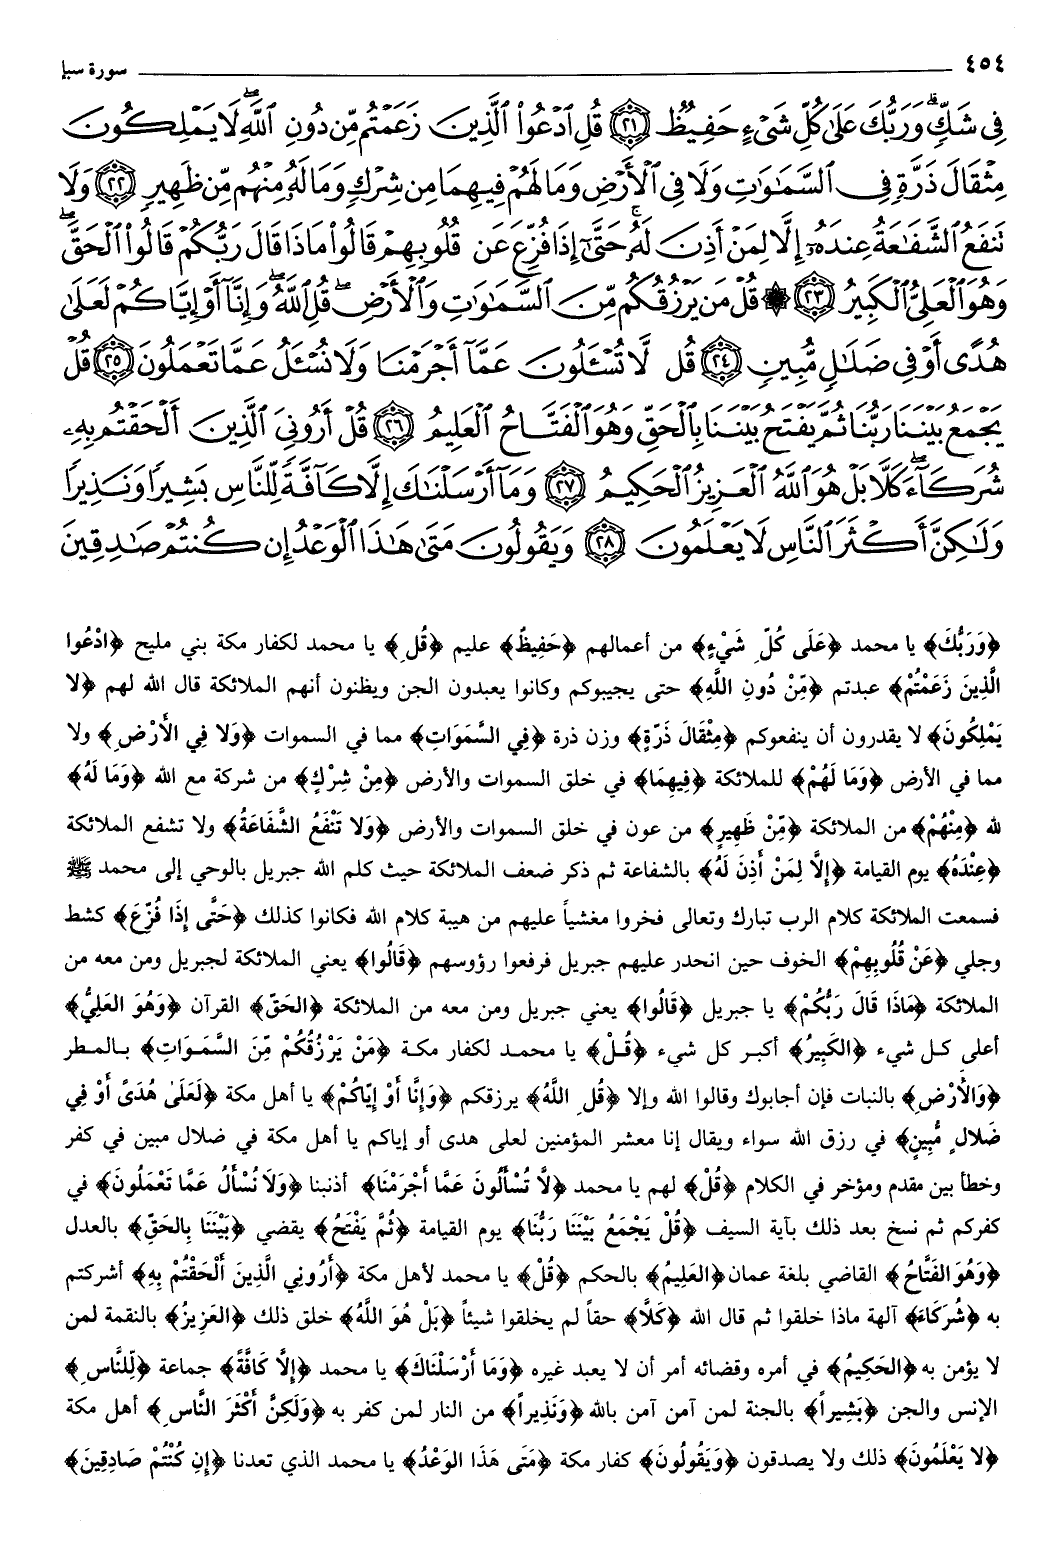 ٤٥٤ سورة سبإ
فِي شَكٍّ وَرَبُّكَ عَلَىٰ كُلِّ شَيْءٍ حَفِيظٌ ﴿٢١﴾ قُلِ ٱدْعُوا۟ ٱلَّذِينَ زَعَمْتُم مِّن دُونِ ٱللَّهِ لَا يَمْلِكُونَ
مِثْقَالَ ذَرَّةٍ فِي ٱلسَّمَٰوَٰتِ وَلَا فِي ٱلْأَرْضِ وَمَا لَهُمْ فِيهِمَا مِن شِرْكٍ وَمَا لَهُۥ مِنْهُم مِّن ظَهِيرٍ ﴿٢٢﴾ وَلَا
تَنفَعُ ٱلشَّفَٰعَةُ عِندَهُۥٓ إِلَّا لِمَنْ أَذِنَ لَهُۥ حَتَّىٰٓ إِذَا فُزِّعَ عَن قُلُوبِهِمْ قَالُوا۟ مَاذَا قَالَ رَبُّكُمْ قَالُوا۟ ٱلْحَقَّ
وَهُوَ ٱلْعَلِيُّ ٱلْكَبِيرُ ﴿٢٣﴾ ۞ قُلْ مَن يَرْزُقُكُم مِّنَ ٱلسَّمَٰوَٰتِ وَٱلْأَرْضِ قُلِ ٱللَّهُ وَإِنَّآ أَوْ إِيَّاكُمْ لَعَلَىٰ
هُدًى أَوْ فِي ضَلَٰلٍ مُّبِينٍ ﴿٢٤﴾ قُل لَّا تُسْـَٔلُونَ عَمَّآ أَجْرَمْنَا وَلَا نُسْـَٔلُ عَمَّا تَعْمَلُونَ ﴿٢٥﴾ قُلْ
يَجْمَعُ بَيْنَنَا رَبُّنَا ثُمَّ يَفْتَحُ بَيْنَنَا بِٱلْحَقِّ وَهُوَ ٱلْفَتَّاحُ ٱلْعَلِيمُ ﴿٢٦﴾ قُلْ أَرُونِيَ ٱلَّذِينَ أَلْحَقْتُم بِهِۦ
شُرَكَآءَ كَلَّا بَلْ هُوَ ٱللَّهُ ٱلْعَزِيزُ ٱلْحَكِيمُ ﴿٢٧﴾ وَمَآ أَرْسَلْنَٰكَ إِلَّا كَآفَّةً لِّلنَّاسِ بَشِيرًا وَنَذِيرًا
وَلَٰكِنَّ أَكْثَرَ ٱلنَّاسِ لَا يَعْلَمُونَ ﴿٢٨﴾ وَيَقُولُونَ مَتَىٰ هَٰذَا ٱلْوَعْدُ إِن كُنتُمْ صَٰدِقِينَ
﴿وَرَبُّكَ﴾ يا محمد ﴿عَلَى كُلِّ شَيْءٍ﴾ من أعمالهم ﴿حَفِيظٌ﴾ عليم ﴿قُلِ﴾ يا محمد لكفار مكة بني مليح ﴿ادْعُوا
الَّذِينَ زَعَمْتُمْ﴾ عبدتم ﴿مِّنْ دُونِ اللَّهِ﴾ حتى يجيبوكم وكانوا يعبدون الجن ويظنون أنهم الملائكة قال الله لهم ﴿لا
يَمْلِكُونَ﴾ لا يقدرون أن ينفعوكم ﴿مِثْقَالَ ذَرَّةٍ﴾ وزن ذرة ﴿فِي السَّمَوَاتِ﴾ مما في السموات ﴿وَلا فِي الأَرْضِ﴾ ولا
مما في الأرض ﴿وَمَا لَهُمْ﴾ للملائكة ﴿فِيهِمَا﴾ في خلق السموات والأرض ﴿مِنْ شِرْكٍ﴾ من شركة مع الله ﴿وَمَا لَهُ﴾
لله ﴿مِنْهُمْ﴾ من الملائكة ﴿مِّنْ ظَهِيرٍ﴾ من عون في خلق السموات والأرض ﴿وَلا تَنْفَعُ الشَّفَاعَةُ﴾ ولا تشفع الملائكة
﴿عِنْدَهُ﴾ يوم القيامة ﴿إِلَّا لِمَنْ أَذِنَ لَهُ﴾ بالشفاعة ثم ذكر ضعف الملائكة حيث كلم الله جبريل بالوحي إلى محمد ﷺ
فسمعت الملائكة كلام الرب تبارك وتعالى فخروا مغشياً عليهم من هيبة كلام الله فكانوا كذلك ﴿حَتَّى إِذَا فُزِّعَ﴾ كشط
وجلي ﴿عَنْ قُلُوبِهِمْ﴾ الخوف حين انحدر عليهم جبريل فرفعوا رؤوسهم ﴿قَالُوا﴾ يعني الملائكة لجبريل ومن معه من
الملائكة ﴿مَاذَا قَالَ رَبُّكُمْ﴾ يا جبريل ﴿قَالُوا﴾ يعني جبريل ومن معه من الملائكة ﴿الحَقَّ﴾ القرآن ﴿وَهُوَ العَلِيُّ﴾
أعلى كل شيء ﴿الكَبِيرُ﴾ أكبر كل شيء ﴿قُلْ﴾ يا محمد لكفار مكة ﴿مَنْ يَرْزُقُكُمْ مِّنَ السَّمَوَاتِ﴾ بالمطر
﴿وَالأَرْضِ﴾ بالنبات فإن أجابوك وقالوا الله وإلا ﴿قُلِ اللَّهُ﴾ يرزقكم ﴿وَإِنَّا أَوْ إِيَّاكُمْ﴾ يا أهل مكة ﴿لَعَلَىٰ هُدَىً أَوْ فِي
ضَلالٍ مُّبِينٍ﴾ في رزق الله سواء ويقال إنا معشر المؤمنين لعلى هدى أو إياكم يا أهل مكة في ضلال مبين في كفر
وخطأ بين مقدم ومؤخر في الكلام ﴿قُلْ﴾ لهم يا محمد ﴿لَّا تُسْأَلُونَ عَمَّا أَجْرَمْنَا﴾ أذنبنا ﴿وَلَا نُسْأَلُ عَمَّا تَعْمَلُونَ﴾ في
كفركم ثم نسخ بعد ذلك بآية السيف ﴿قُلْ يَجْمَعُ بَيْنَنَا رَبُّنَا﴾ يوم القيامة ﴿ثُمَّ يَفْتَحُ﴾ يقضي ﴿بَيْنَنَا بِالحَقِّ﴾ بالعدل
﴿وَهُوَ الفَتَّاحُ﴾ القاضي بلغة عمان ﴿العَلِيمُ﴾ بالحكم ﴿قُلْ﴾ يا محمد لأهل مكة ﴿أَرُونِي الَّذِينَ أَلْحَقْتُمْ بِهِ﴾ أشركتم
به ﴿شُرَكَاءَ﴾ آلهة ماذا خلقوا ثم قال الله ﴿كَلَّا﴾ حقاً لم يخلقوا شيئاً ﴿بَلْ هُوَ اللَّهُ﴾ خلق ذلك ﴿العَزِيزُ﴾ بالنقمة لمن
لا يؤمن به ﴿الحَكِيمُ﴾ في أمره وقضائه أمر أن لا يعبد غيره ﴿وَمَا أَرْسَلْنَاكَ﴾ يا محمد ﴿إِلَّا كَافَّةً﴾ جماعة ﴿لِّلنَّاسِ﴾
الإنس والجن ﴿بَشِيراً﴾ بالجنة لمن آمن آمن بالله ﴿وَنَذِيراً﴾ من النار لمن كفر به ﴿وَلَكِنَّ أَكْثَرَ النَّاسِ﴾ أهل مكة
﴿لا يَعْلَمُونَ﴾ ذلك ولا يصدقون ﴿وَيَقُولُونَ﴾ كفار مكة ﴿مَتَى هَذَا الوَعْدُ﴾ يا محمد الذي تعدنا ﴿إِن كُنْتُمْ صَادِقِينَ﴾